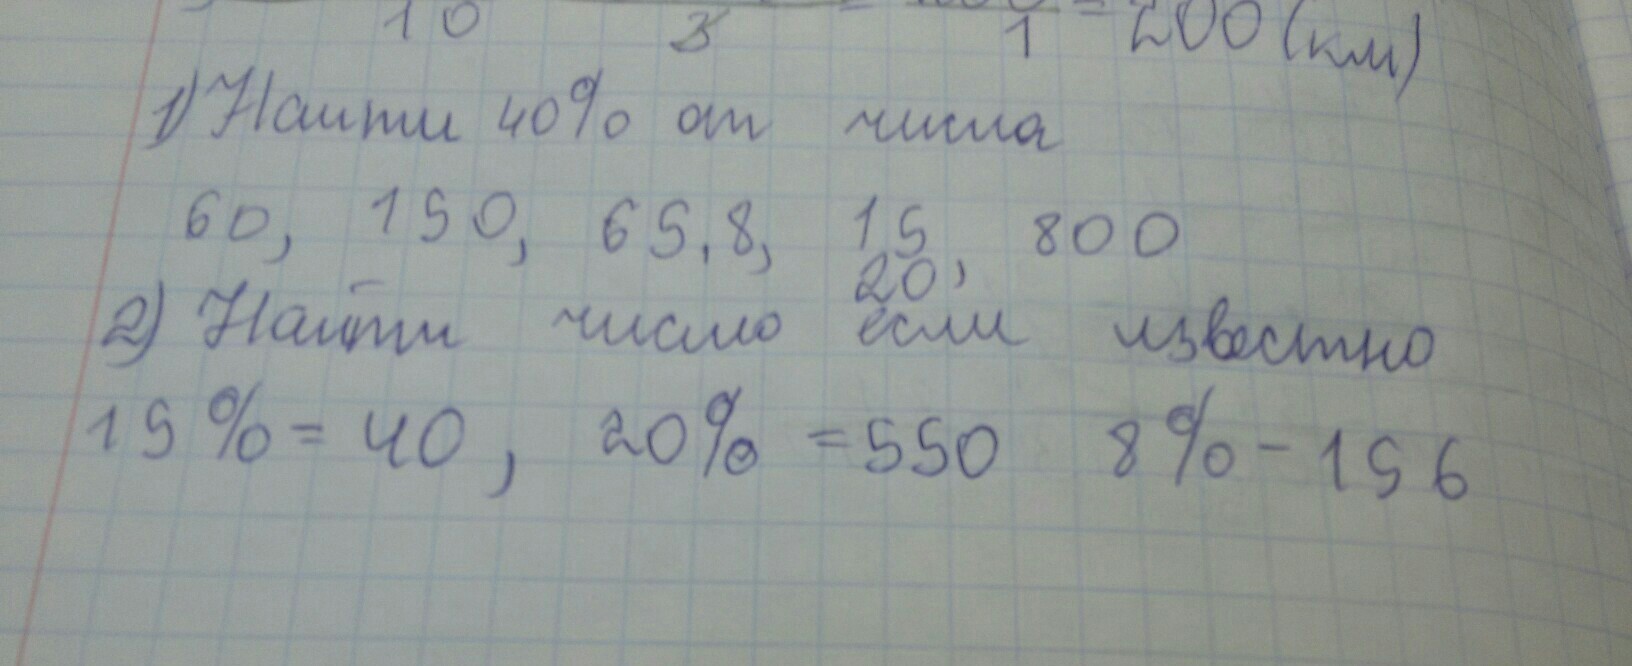 10 3 = 1 = 200 (км)
1) Найти 40% от числа
60, 150, 65,8, 15, 800
20
2) Найти число если известно
15% = 40, 20% = 550 8% - 156